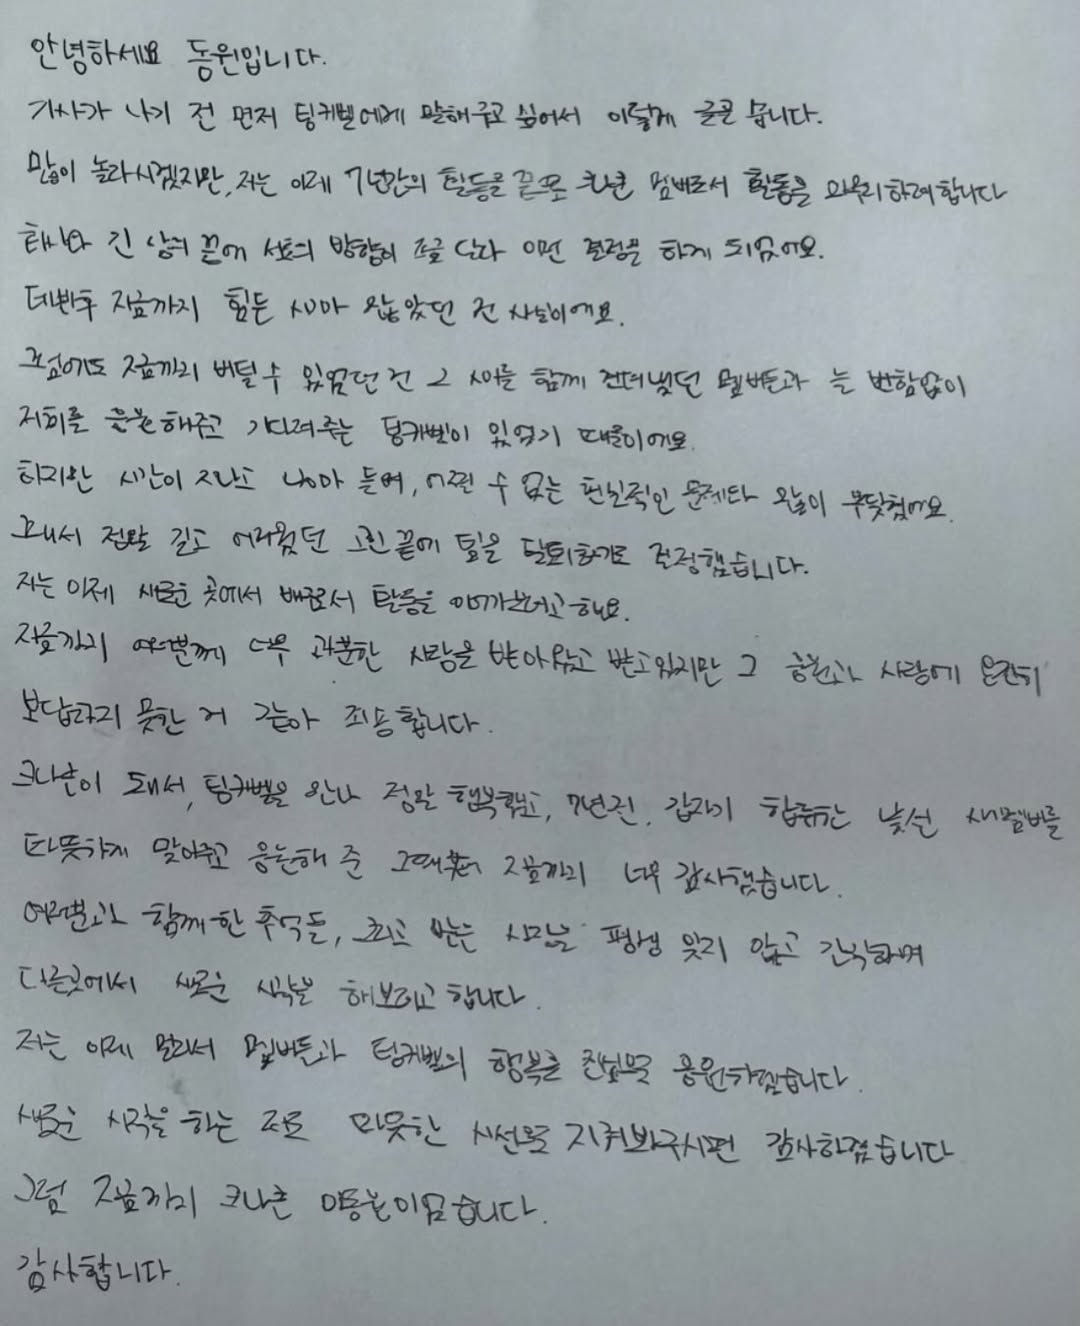 안녕하세요 동원입니다.
기사가 나기 전 먼저 팅커벨에게 말해주고 싶어서 이렇게 글을 씁니다.
많이 놀라시겠지만, 저는 이제 7년간의 활동을 끝으로 크나큰 멤버로서 활동을 마무리하려합니다
회사와 긴 상의 끝에 서로의 방향이 조금 달라 이런 결정을 하게 되었어요.
데뷔후 지금까지 힘든 시간이 많았던 건 사실이에요.
그럼에도 지금까지 버틸 수 있었던 건 그 시간을 함께 견뎌냈던 멤버들과 늘 변함없이
저희를 응원해주고 기다려주는 팅커벨이 있었기 때문이에요.
하지만 시간이 지나고 나이가 들며, 어쩔 수 없는 현실적인 문제와 많이 부딪혔어요.
그래서 정말 길고 어려웠던 고민 끝에 팀을 탈퇴하기로 결정했습니다.
저는 이제 새로운 곳에서 배우로서 활동을 이어가보려고 해요.
지금까지 여러분께 너무 과분한 사랑을 받아왔고 받고있지만 그 응원과 사랑에 온전히
보답하지 못한 거 같아 죄송합니다.
크나큰이 돼서, 팅커벨을 만나 정말 행복했고, 7년전, 갑자기 합류한 낯선 새멤버를
따뜻하게 맞아주고 응원해 준 그때부터 지금까지 너무 감사했습니다.
여러분과 함께한 추억들, 그리고 받은 사랑들 평생 잊지 않고 간직하며
다른곳에서 새로운 시작을 해보려고 합니다.
저는 이제 멀리서 멤버들과 팅커벨의 행복을 진심으로 응원하겠습니다.
새로운 시작을 하는 저도 따뜻한 시선으로 지켜봐주시면 감사하겠습니다
그럼 지금까지 크나큰 이동원이었습니다.
감사합니다.